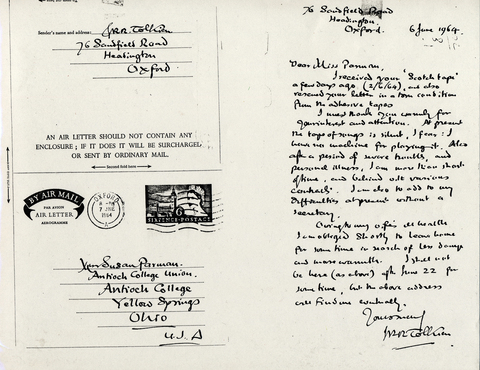 Sender's name and address: J.R.R. Tolkien
76 Sandfield Road
Headington
Oxford
AN AIR LETTER SHOULD NOT CONTAIN ANY
ENCLOSURE; IF IT DOES IT WILL BE SURCHARGED
OR SENT BY ORDINARY MAIL.
Second fold here
BY AIR MAIL
PAR AVION
AIR LETTER
AEROGRAMME
OXFORD
7 JNE
1964
6
SIXPENCE POSTAGE
Susan Parman.
Antioch College Union.
Antioch College
Yellow Springs
Ohio
U.S.A
76 Sandfield Road
Headington
Oxford. 6 June 1964.
Dear Miss Parman,
I received your 'Scotch tape'
a few days ago (2/6/64), and also
received your letter in a torn condition
from the adhesive tapes
I must thank you warmly for
your interest and attention. At present
the tape of songs is silent, I fear: I
have no machine for playing it. Also
after a period of severe trouble, and
personal illness, I am more than short
of time, and behind with various
contracts. I am also to add to my
difficulties at present without a
secretary.
Owing to my wife's ill health
I am obliged shortly to leave home
for some time in search of less damp
and more warmth. I shall not
be here (as above) after June 22 for
some time, but the above address
will find me eventually.
Yours sincerely
J.R.R. Tolkien